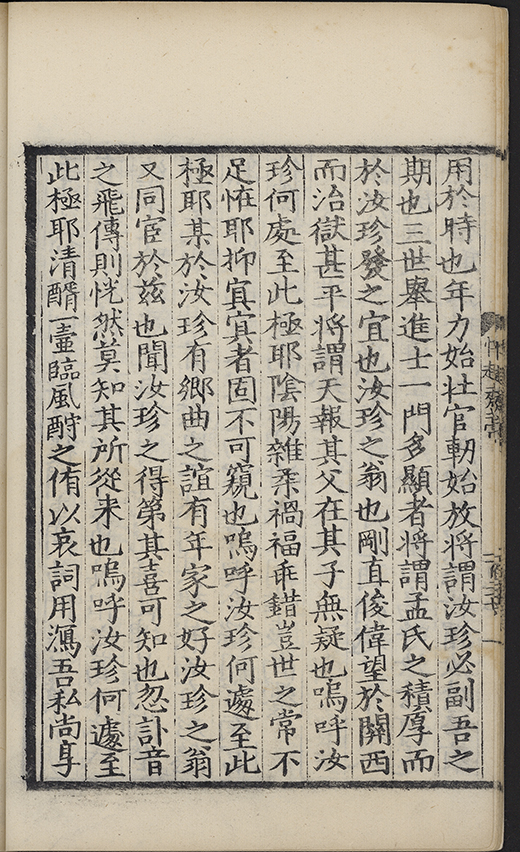 用於時也年力始壯官軔始放將謂汝珍必副吾之
期也三世舉進士一門多顯者將謂孟氏之積厚而
於汝珍發之宜也汝珍之翁也剛直俊偉望於關西
而治獄甚平將謂天報其父在其子無疑也嗚呼汝
珍何處至此極耶陰陽雜柔禍福乖錯豈世之常不
足恠耶抑冥冥者固不可窺也嗚呼汝珍何遽至此
極耶某於汝珍有鄉曲之誼有年家之好汝珍之翁
又同宦於茲也聞汝珍之得第其喜可知也忽訃音
之飛傳則恍然莫知其所從来也嗚呼汝珍何遽至
此極耶清醑一壺臨風酹之侑以哀詞用瀉吾私尚享